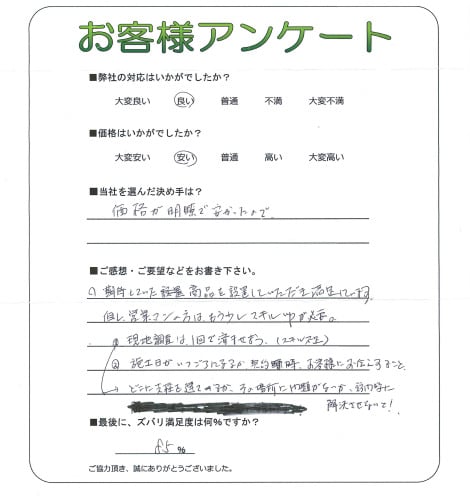 お客様アンケート
■弊社の対応はいかがでしたか？
大変良い 良い 普通 不満 大変不満
■価格はいかがでしたか？
大変安い 安い 普通 高い 大変高い
■当社を選んだ決め手は？
価格が明瞭で安かったので。
■ご感想・ご要望などをお書き下さい。
期待していた設置商品を設置していただき満足しています。
但し、営業マンの方はもう少しスキルupが必要。
現地調査は1回で済ませよう。(スキル不足)
② 施工日がいつごろになるか、契約時、お客様にお伝えすること
どこに を めるか、その場所に問題がないか、 に
解決させないと!
■最後に、ズバリ満足度は何%ですか？
85 %
ご協力頂き、誠にありがとうございました。